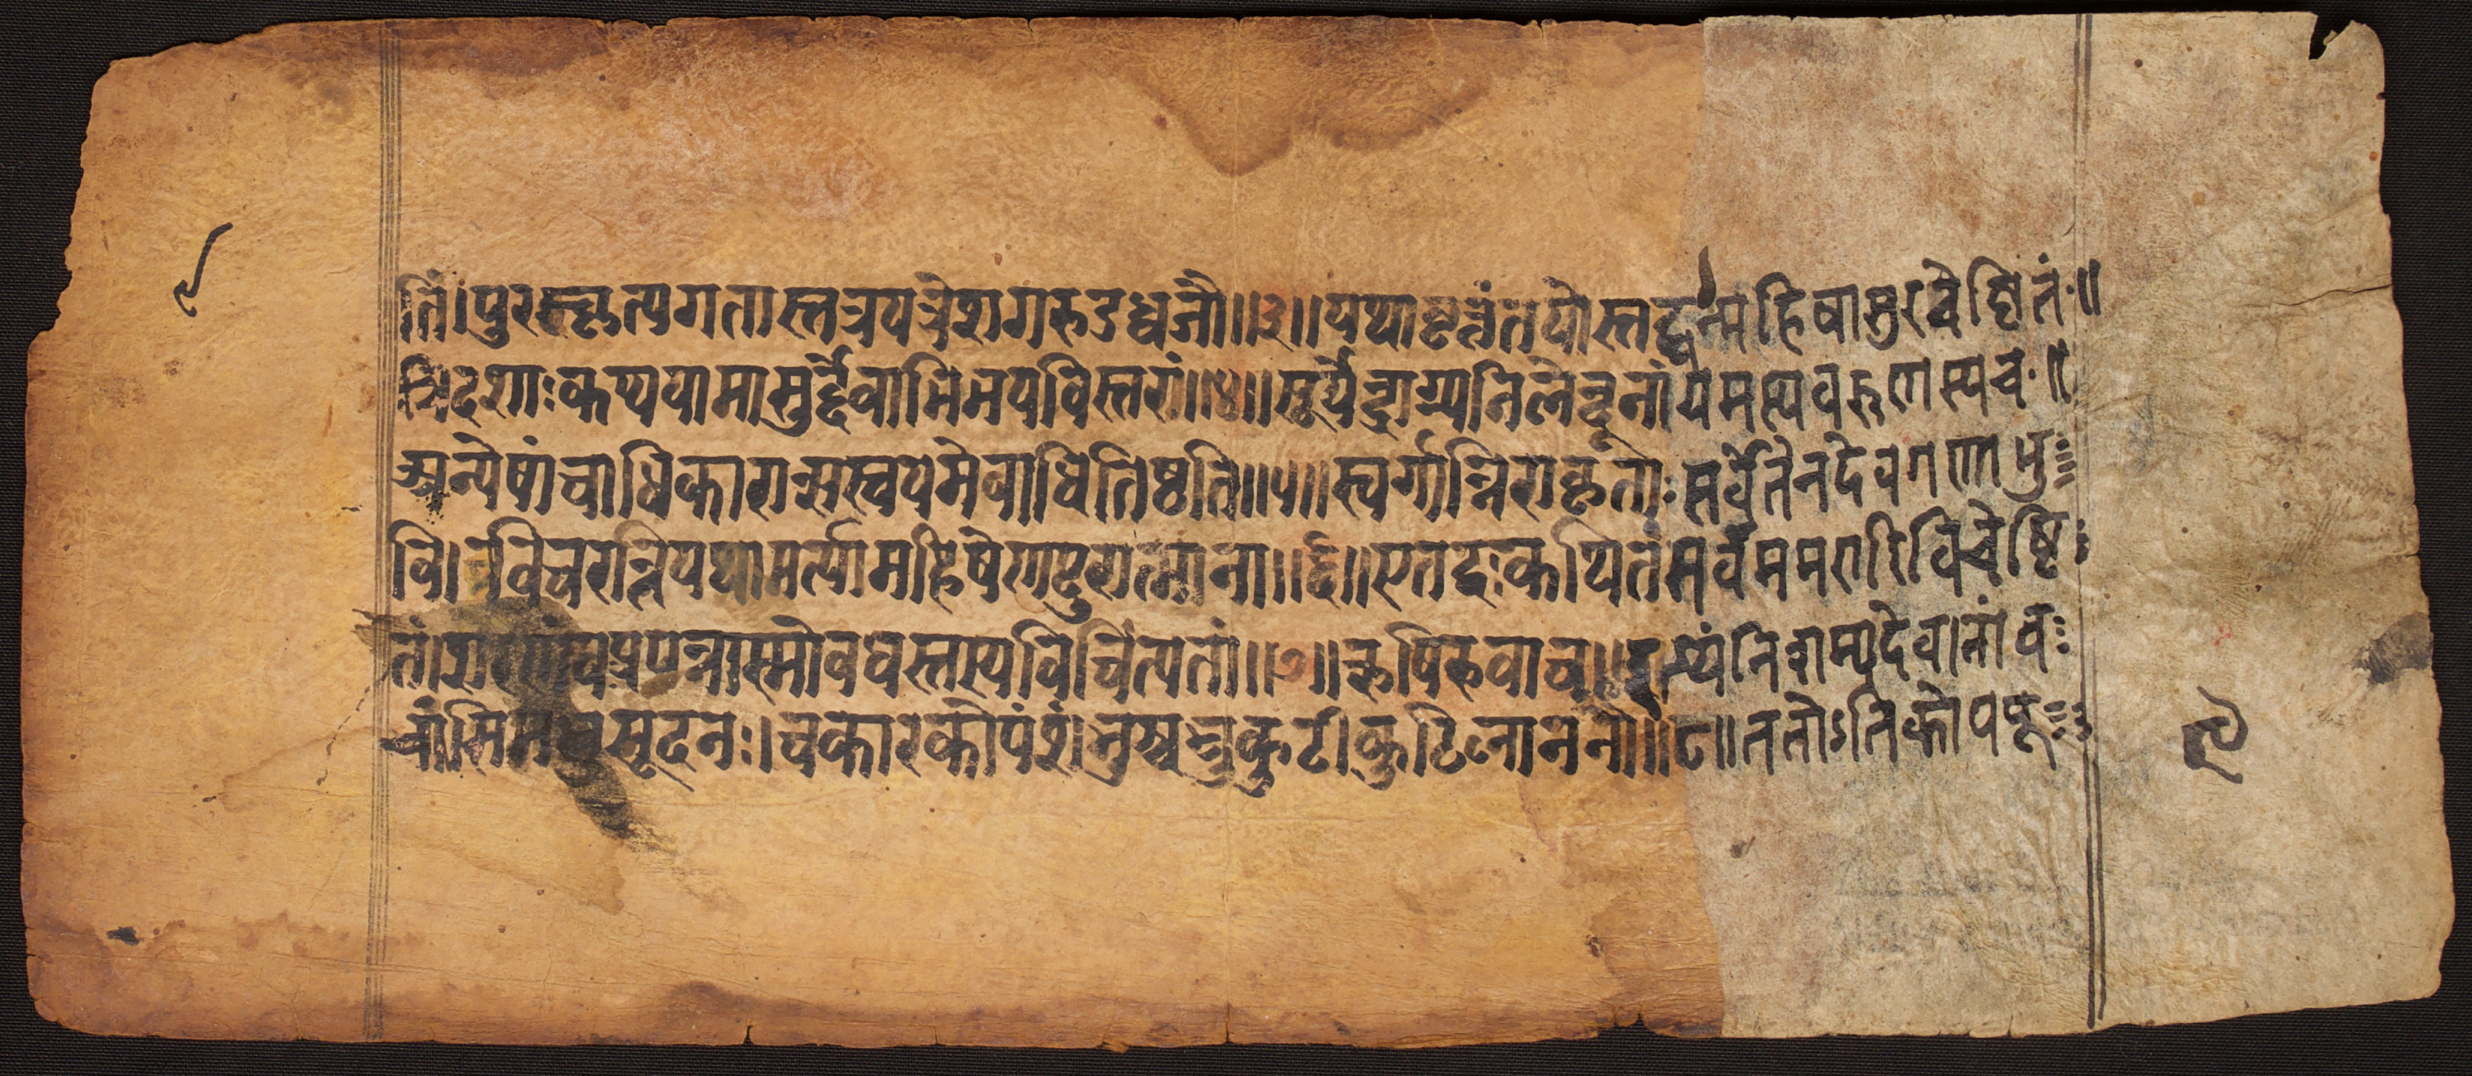 तिं।पुरस्कृत्यगतास्तत्रयत्रेशगरुडध्वजौ॥३॥यथावृत्तंतयोस्तद्वन्महिषासुरचेष्टितं॥
त्रिदशाःकथयामासुर्द्देवाभिभवविस्तरां॥४॥सूर्येन्द्राग्न्यनिलेन्दूनांयमस्यवरुणस्यच॥
अन्येषांचाधिकारान्सस्वयमेवाधितिष्ठति॥५॥स्वर्गान्निराकृताःसर्वेतेनदेवगणाभु
वि।विचरन्तियथामर्त्यामहिषेणदुरात्मना॥६॥एतद्वःकथितंसर्वममरारिविचेष्टि
तं।शरणंवःप्रपन्नास्मोवधस्तस्यविचिंत्यतां॥७॥ऋषिरुवाच॥इत्थंनिशम्यदेवानांव
चांसिमधुसूदनः।चकारकोपंशंभुश्चभ्रुकुटीकुटिलाननौ॥८॥ततोऽतिकोपपू
९